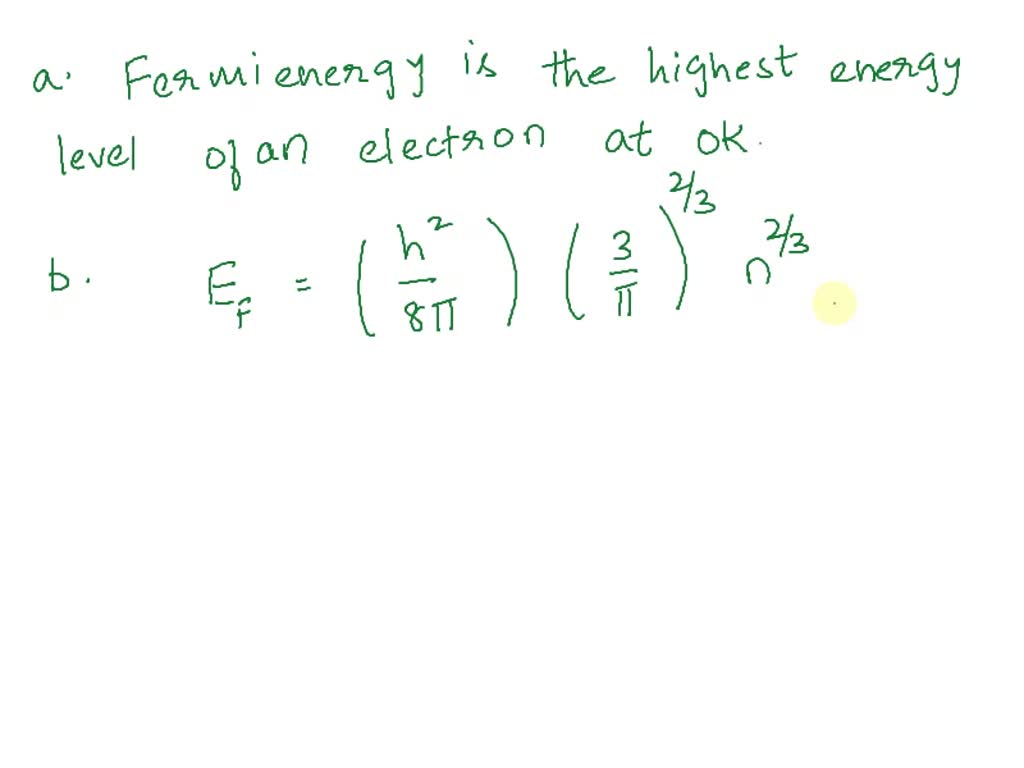 a. Fermienergy is the highest energy
level of an electron at 0K.
b. E_F = (h²/8π) (3/π)^2/3 n^2/3